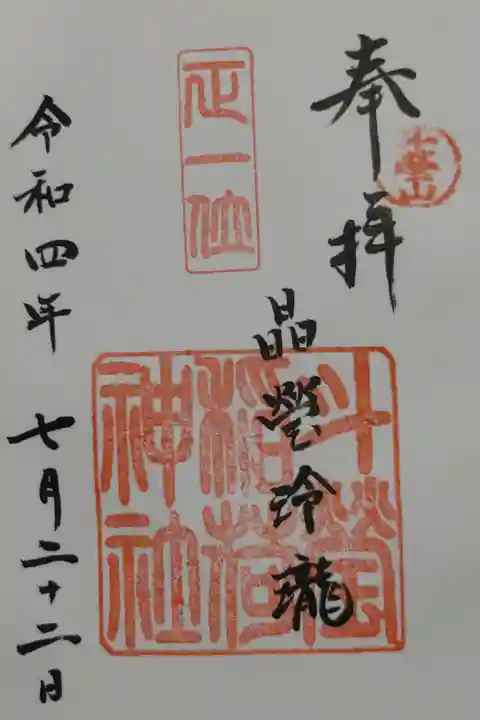 奉拝
正一位
晶瑩玲瓏
斗瑩
稲荷
神社
令和四年 七月二十二日